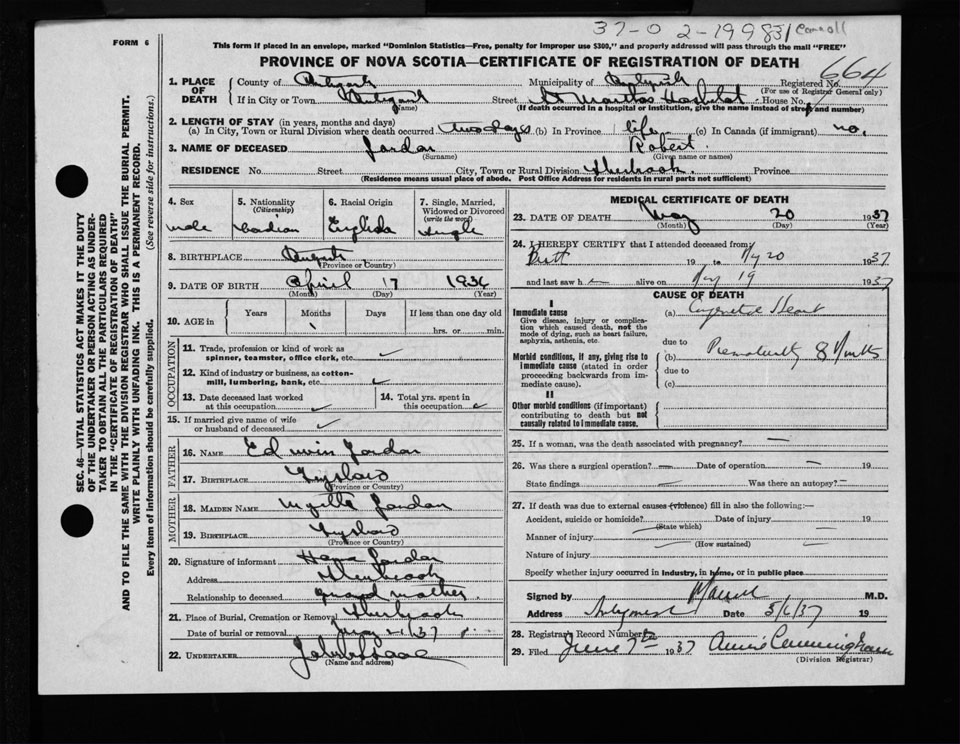 37-0 2-1998
FORM 6
This form if placed in an envelope, marked "Dominion Statistics—Free, penalty for improper use $300," and properly addressed will pass through the mail "FREE"
PROVINCE OF NOVA SCOTIA—CERTIFICATE OF REGISTRATION OF DEATH
664
1. PLACE OF DEATH
County of
Municipality of
Registered No.
(For use of Registrar General only)
If in City or Town
(Name)
Street St Marthas Hospital House No.
(If death occurred in a hospital or institution, give the name instead of street and number)
2. LENGTH OF STAY (in years, months and days)
(a) In City, Town or Rural Division where death occurred two days (b) In Province life (c) In Canada (if immigrant) no,
3. NAME OF DECEASED Jordan Robert.
(Surname) (Given name or names)
RESIDENCE No. Street City, Town or Rural Division Sherbrook. Province
(Residence means usual place of abode. Post Office Address for residents in rural parts not sufficient)
4. Sex
male
5. Nationality
(Citizenship)
6. Racial Origin
7. Single, Married, Widowed or Divorced
(write the word)
Single
8. BIRTHPLACE
(Province or Country)
9. DATE OF BIRTH April 17
(Month) (Day) (Year)
10. AGE in
Years Months Days If less than one day old
hrs. or min.
OCCUPATION
11. Trade, profession or kind of work as spinner, teamster, office clerk, etc. ✓
12. Kind of industry or business, as cotton-mill, lumbering, bank, etc. ✓
13. Date deceased last worked at this occupation ✓
14. Total yrs. spent in this occupation ✓
15. If married give name of wife or husband of deceased ✓
FATHER
16. NAME Edwin Jordan
17. BIRTHPLACE
(Province or Country)
MOTHER
18. MAIDEN NAME Jordan
19. BIRTHPLACE
(Province or Country)
20. Signature of informant Jordan
Address Sherbrook
Relationship to deceased grand mother
21. Place of Burial, Cremation or Removal Sherbrook
Date of burial or removal May 21/37
22. UNDERTAKER
(Name and address)
MEDICAL CERTIFICATE OF DEATH
23. DATE OF DEATH May 20 1937
(Month) (Day) (Year)
24. I HEREBY CERTIFY that I attended deceased from
Birth 19 to May 20 1937
and last saw h alive on May 19 1937
CAUSE OF DEATH
I
Immediate cause
Give disease, injury or complication which caused death, not the mode of dying, such as heart failure, asphyxia, asthenia, etc.
(a) Congenital Heart
due to
Morbid conditions, if any, giving rise to immediate cause (stated in order proceeding backwards from immediate cause).
(b) Prematurity 8 Months
due to
(c)
II
Other morbid conditions (if important) contributing to death but not causally related to immediate cause.
25. If a woman, was the death associated with pregnancy? —
26. Was there a surgical operation? — Date of operation — 19
State findings — Was there an autopsy? —
27. If death was due to external causes (violence) fill in also the following:—
Accident, suicide or homicide? Date of injury 19
(State which)
Manner of injury
(How sustained)
Nature of injury
Specify whether injury occurred in industry, in home, or in public place
Signed by M.D.
Address Date 5/6/37 19
28. Registrar's Record Number
29. Filed June 7th 1937 Annie Cunningham
(Division Registrar)
SEC. 46—VITAL STATISTICS ACT MAKES IT THE DUTY
OF THE UNDERTAKER OR PERSON ACTING AS UNDER-
TAKER TO OBTAIN ALL THE PARTICULARS REQUIRED
IN THE "CERTIFICATE OF REGISTRATION OF DEATH"
AND TO FILE THE SAME WITH THE DIVISION REGISTRAR WHO SHALL ISSUE THE BURIAL PERMIT.
WRITE PLAINLY WITH UNFADING INK. THIS IS A PERMANENT RECORD.
Every item of information should be carefully supplied. (See reverse side for instructions.)